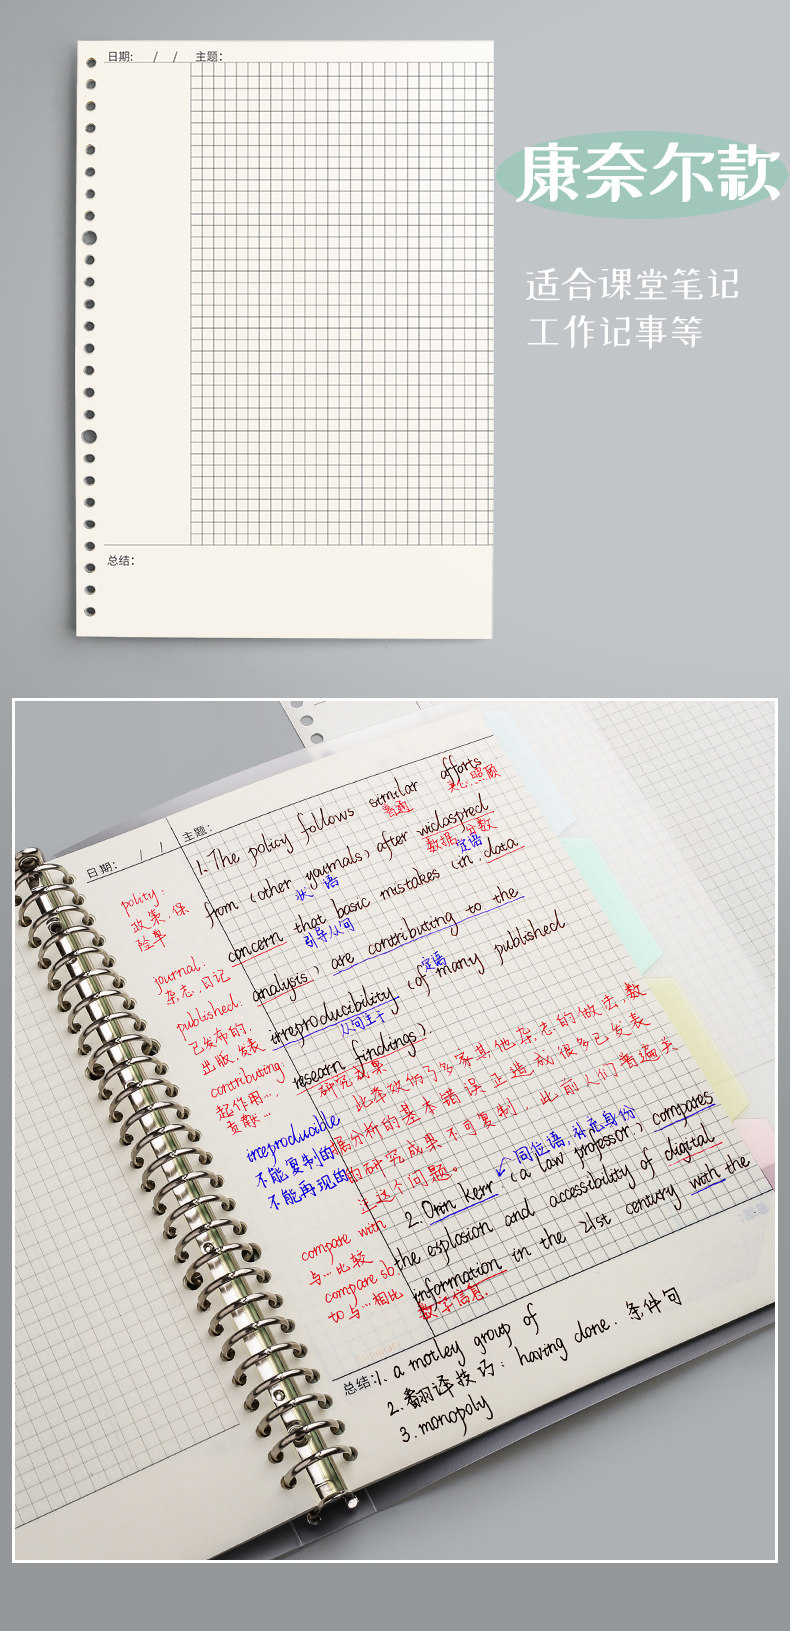 日期: / / 主题:
康奈尔款
适合课堂笔记
工作记事等
总结:
日期: / / 主题:
1. The policy follows similar efforts
美国
关心,照顾
from (other yournals) after widaspred
数据,分数
状语
定语
concern that basic mistakes (in data
引导从句
analysis) are contributing to the
定语
irreproducibility (of many published
从句主干
researn findings)
研究成果
此举效仿了多家其他杂志的做法,数
据分析的基本错误正造成很多已发表
的研究成果不可复制,此前人们普遍关
注这个问题。
同位语,补充身份
2. Orin Kerr (a law professor) compares
the explosion and accessibility of digital
information in the 21st century with the
数字信息.
polity:
政策,保
险单
journal:
杂志,日记
published:
已发布的,
出版,发表
contributing:
起作用…
贡献…
irreproducible
不能复制的
不能再现的
compare with
与…比较
compare sb.
to 与…相比
总结:1. a motley group of
2. 翻译技巧: having done. 条件句
3. monopoly